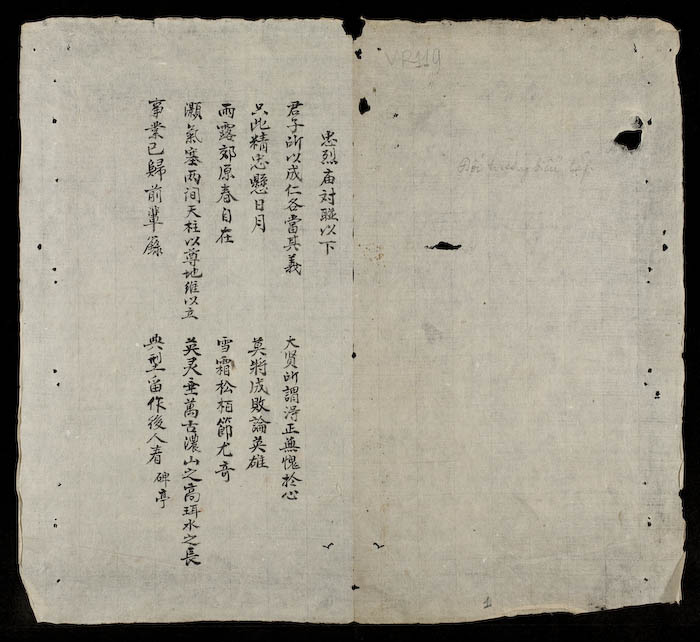 忠烈庙对聮以下
君子所以成仁各當其義
大贤所謂淂正無愧於心
只此精忠懸日月
莫將成敗論英雄
雨露郊原春自在
雪霜松栢節尤奇
灝氣塞两间天柱以尊地維以立
英灵垂萬古濃山之高珥水之長
事業已歸前輩錄
典型留作後人看 碑亭
VR119
1